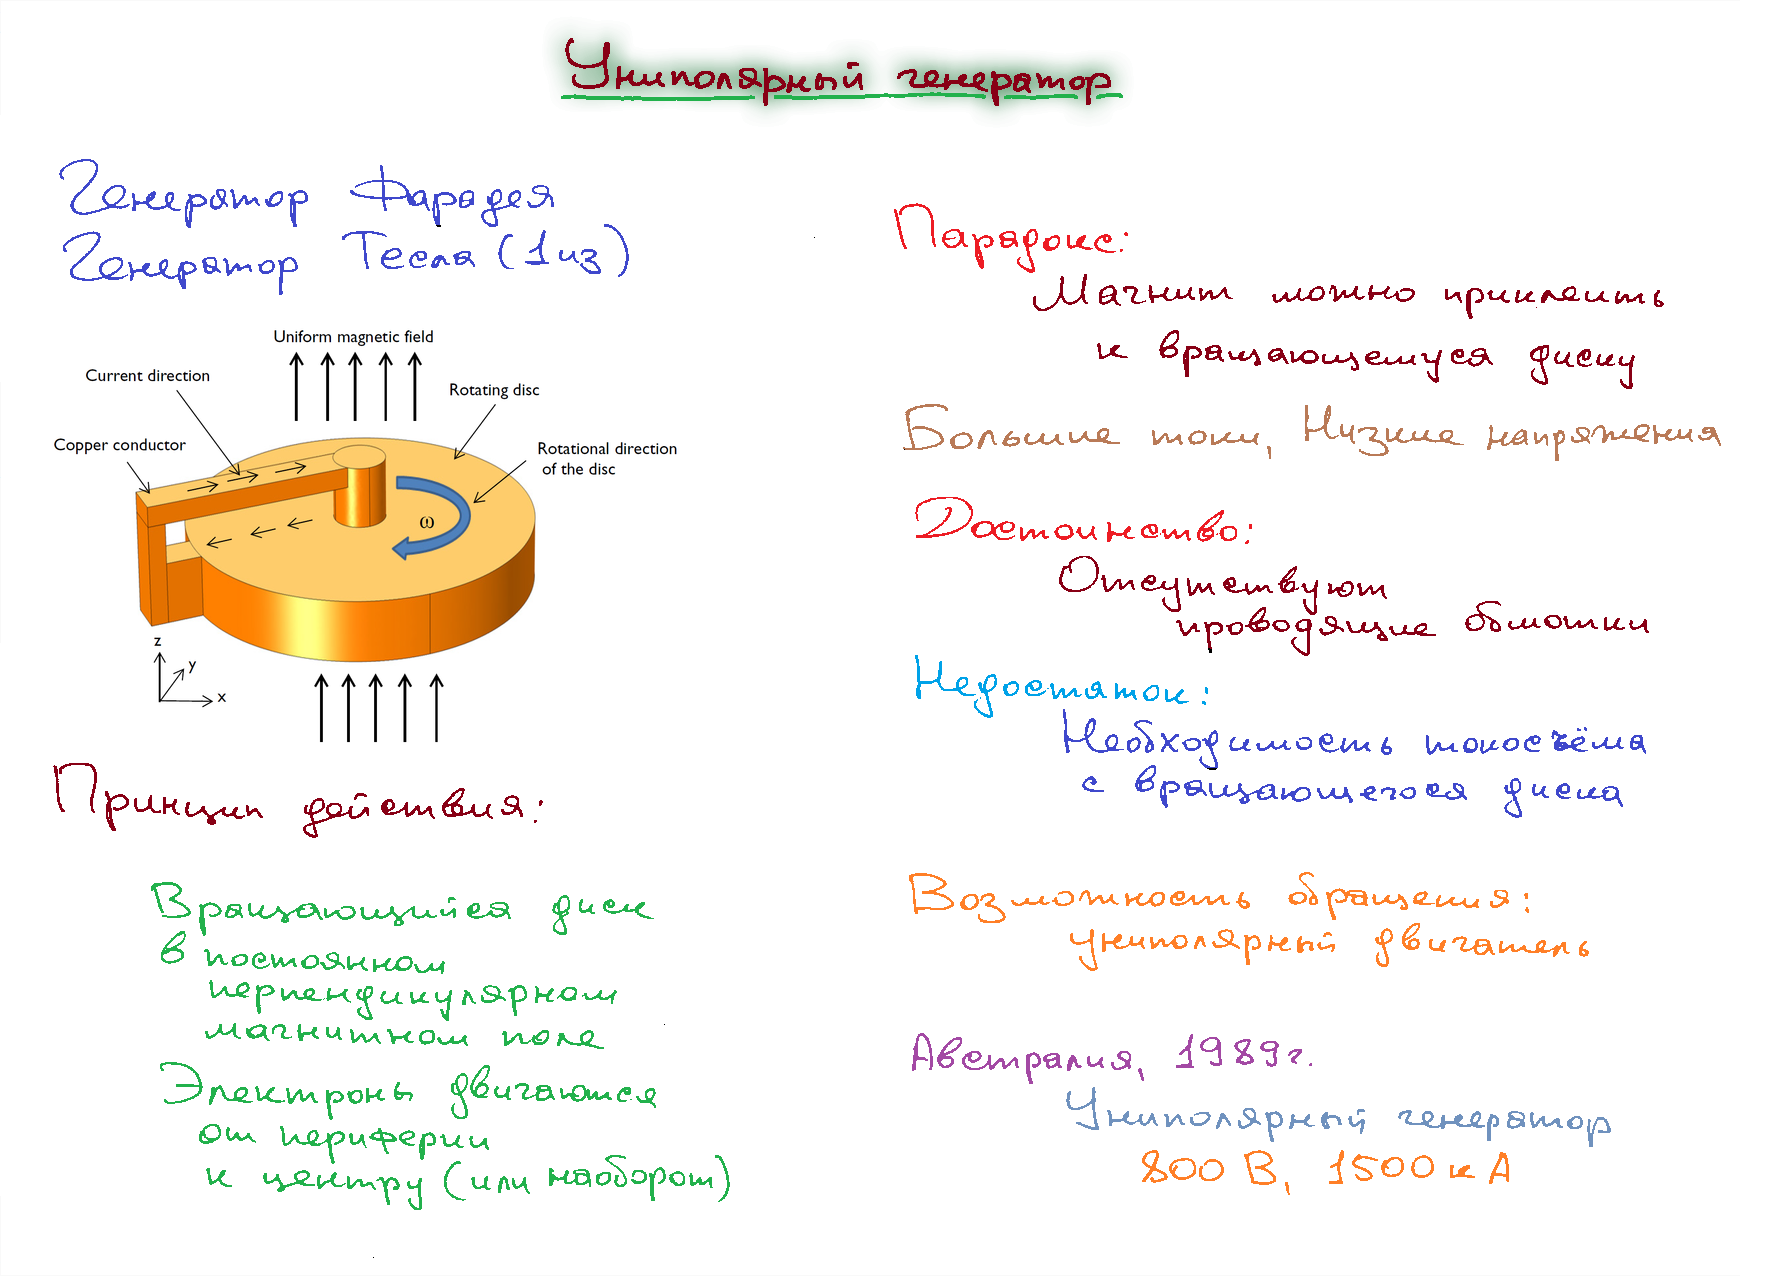 Униполярный генератор
Генератор Фарадея
Генератор Тесла (1 из)
Uniform magnetic field
Current direction
Rotating disc
Copper conductor
Rotational direction
of the disc
ω
z
y
x
Принцип действия:
Вращающийся диск
в постоянном
перпендикулярном
магнитном поле
Электроны двигаются
от периферии
к центру (или наоборот)
Парадокс:
Магнит можно приклеить
к вращающемуся диску
Большие токи, Низкие напряжения
Достоинство:
Отсутствуют
проводящие обмотки
Недостаток:
Необходимость токосъёма
с вращающегося диска
Возможность обращения:
униполярный двигатель
Австралия, 1989г.
Униполярный генератор
800 В, 1500 кА